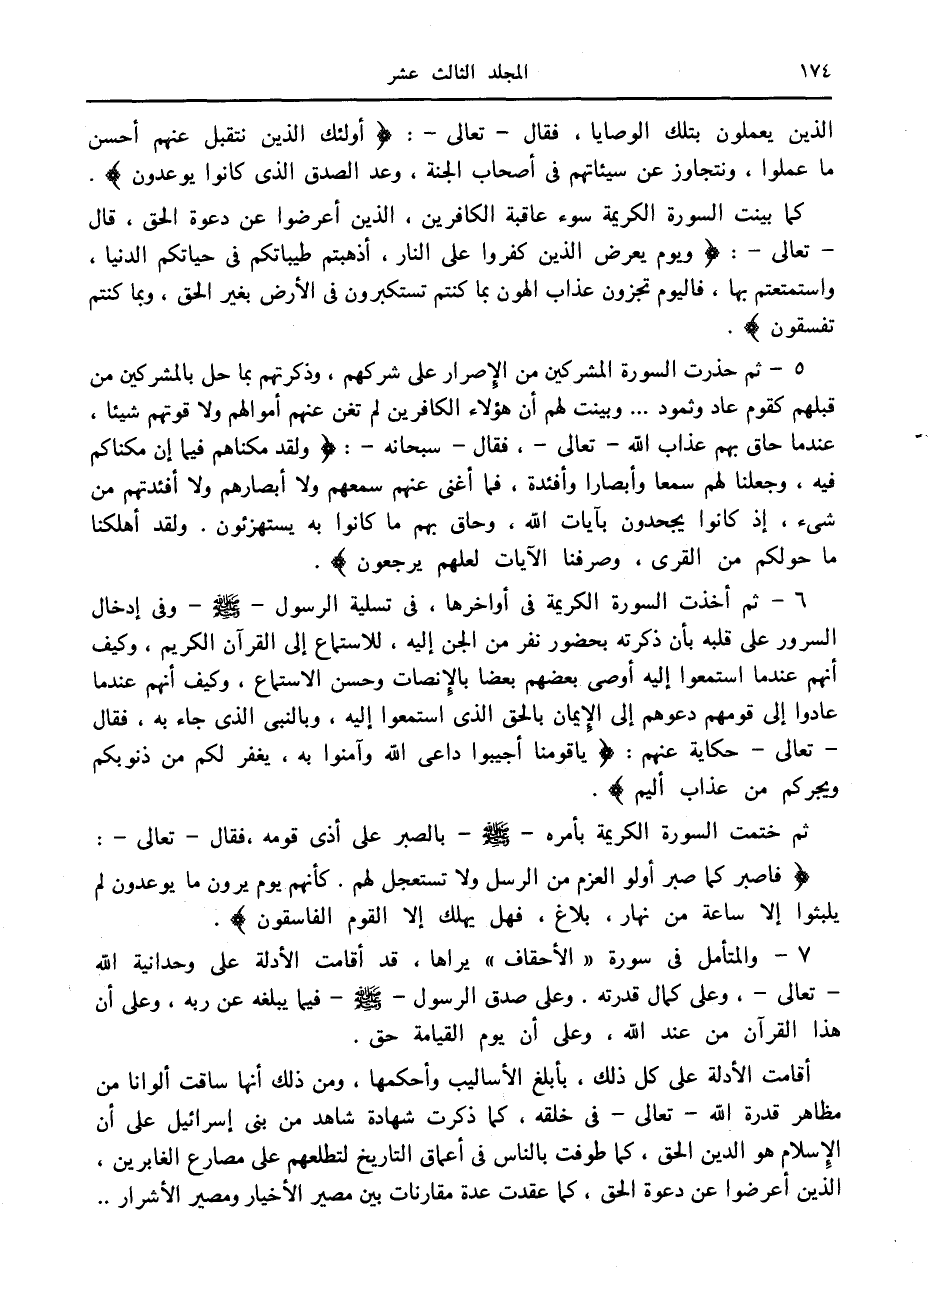 ١٧٤ المجلد الثالث عشر
الذين يعملون بتلك الوصايا ، فقال – تعالى – : ﴿ أولئك الذين نتقبل عنهم أحسن
ما عملوا ، ونتجاوز عن سيئاتهم فى أصحاب الجنة ، وعد الصدق الذى كانوا يوعدون ﴾ .
كما بينت السورة الكريمة سوء عاقبة الكافرين ، الذين أعرضوا عن دعوة الحق ، قال
– تعالى – : ﴿ ويوم يعرض الذين كفروا على النار ، أذهبتم طيباتكم فى حياتكم الدنيا ،
واستمتعتم بها ، فاليوم تجزون عذاب الهون بما كنتم تستكبرون فى الأرض بغير الحق ، وبما كنتم
تفسقون ﴾ .
٥ – ثم حذرت السورة المشركين من الإصرار على شركهم ، وذكرتهم بما حل بالمشركين من
قبلهم كقوم عاد وثمود ... وبينت لهم أن هؤلاء الكافرين لم تغن عنهم أموالهم ولا قوتهم شيئا ،
عندما حاق بهم عذاب الله – تعالى – ، فقال – سبحانه – : ﴿ ولقد مكناهم فيما إن مكناكم
فيه ، وجعلنا لهم سمعا وأبصارا وأفئدة ، فما أغنى عنهم سمعهم ولا أبصارهم ولا أفئدتهم من
شىء ، إذ كانوا يجحدون بآيات الله ، وحاق بهم ما كانوا به يستهزئون . ولقد أهلكنا
ما حولكم من القرى ، وصرفنا الآيات لعلهم يرجعون ﴾ .
٦ – ثم أخذت السورة الكريمة فى أواخرها ، فى تسلية الرسول – ﷺ – وفى إدخال
السرور على قلبه بأن ذكرته بحضور نفر من الجن إليه ، للاستماع إلى القرآن الكريم ، وكيف
أنهم عندما استمعوا إليه أوصى بعضهم بعضا بالإنصات وحسن الاستماع ، وكيف أنهم عندما
عادوا إلى قومهم دعوهم إلى الإيمان بالحق الذى استمعوا إليه ، وبالنبى الذى جاء به ، فقال
– تعالى – حكاية عنهم : ﴿ ياقومنا أجيبوا داعى الله وآمنوا به ، يغفر لكم من ذنوبكم
ويجركم من عذاب أليم ﴾ .
ثم ختمت السورة الكريمة بأمره – ﷺ – بالصبر على أذى قومه ،فقال – تعالى – :
﴿ فاصبر كما صبر أولو العزم من الرسل ولا تستعجل لهم . كأنهم يوم يرون ما يوعدون لم
يلبثوا إلا ساعة من نهار ، بلاغ ، فهل يهلك إلا القوم الفاسقون ﴾ .
٧ – والمتأمل فى سورة « الأحقاف » يراها ، قد أقامت الأدلة على وحدانية الله
– تعالى – ، وعلى كمال قدرته . وعلى صدق الرسول – ﷺ – فيما يبلغه عن ربه ، وعلى أن
هذا القرآن من عند الله ، وعلى أن يوم القيامة حق .
أقامت الأدلة على كل ذلك ، بأبلغ الأساليب وأحكمها ، ومن ذلك أنها ساقت ألوانا من
مظاهر قدرة الله – تعالى – فى خلقه ، كما ذكرت شهادة شاهد من بنى إسرائيل على أن
الإسلام هو الدين الحق ، كما طوفت بالناس فى أعماق التاريخ لتطلعهم على مصارع الغابرين ،
الذين أعرضوا عن دعوة الحق ، كما عقدت عدة مقارنات بين مصير الأخيار ومصير الأشرار ..